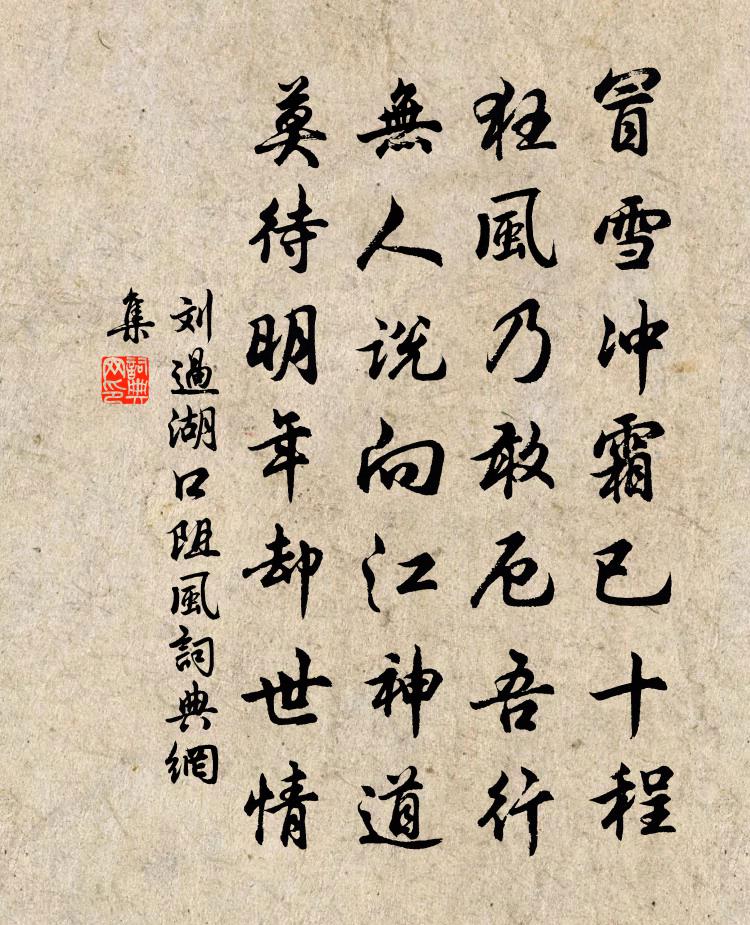 冒雪冲霜已十程
狂風乃敢厄吾行
無人説向江神道
莫待明年却世情
刘過湖口阻風詞典網
集
詞典
网印